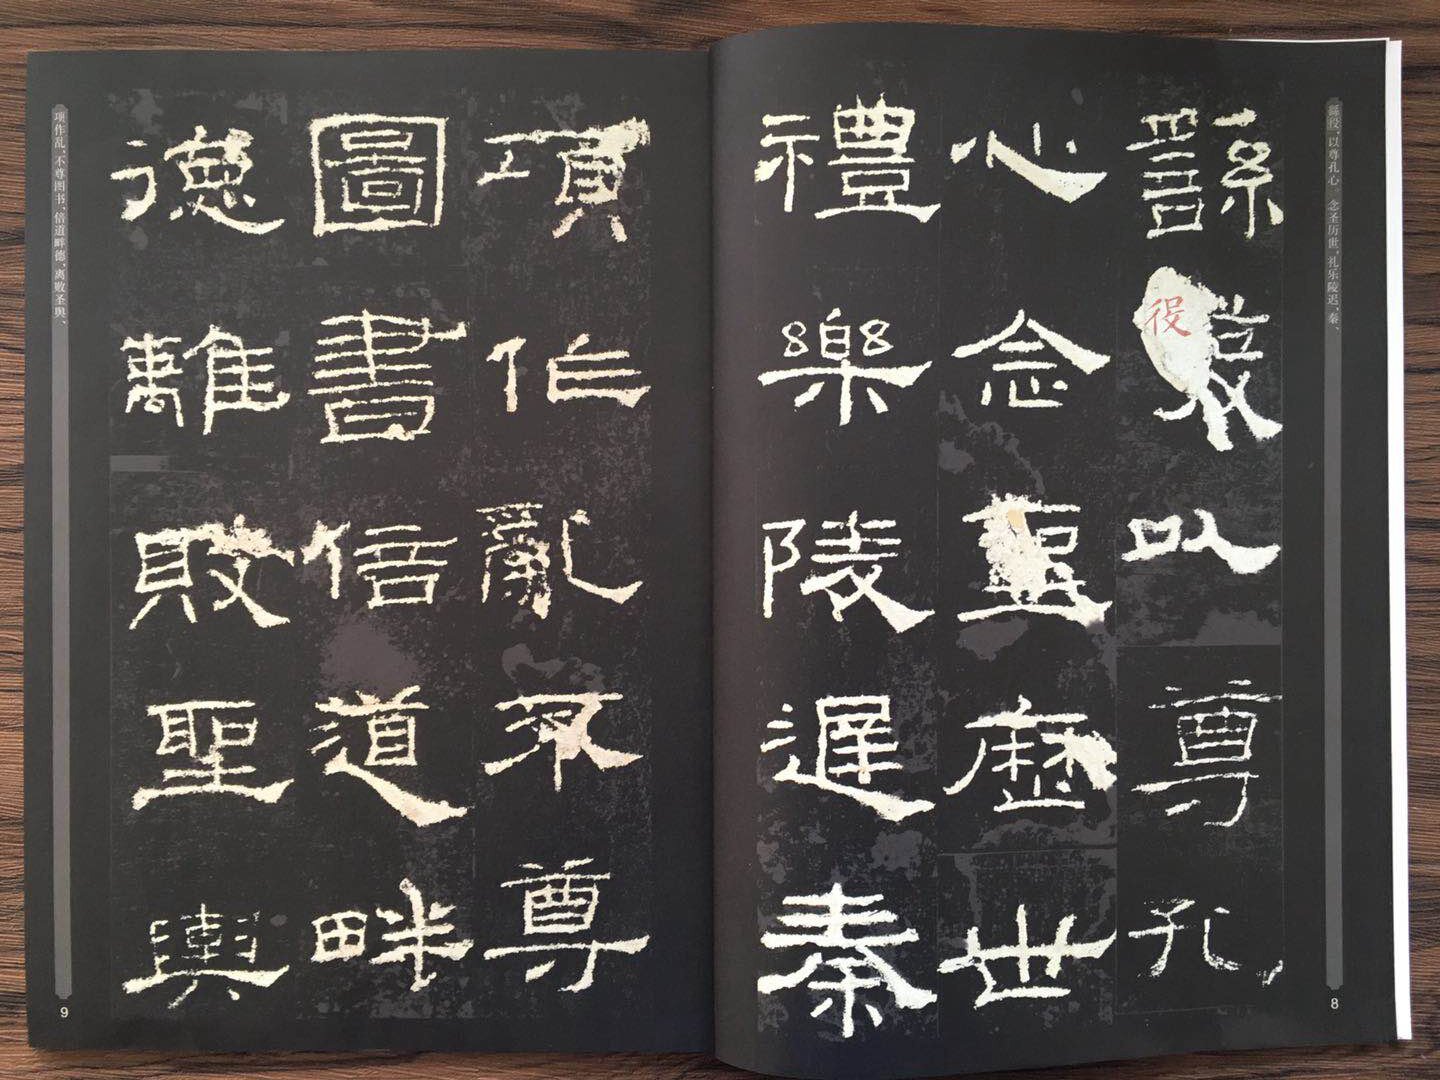 繇發以尊孔
心念聖歷世
禮樂陵遲秦
項作亂不尊
圖書倍道畔
德離敗聖輿
役
繇役，以尊孔心，念圣历世，礼乐陵迟，秦、
项作乱，不尊图书，倍道畔德，离败圣舆、
8
9